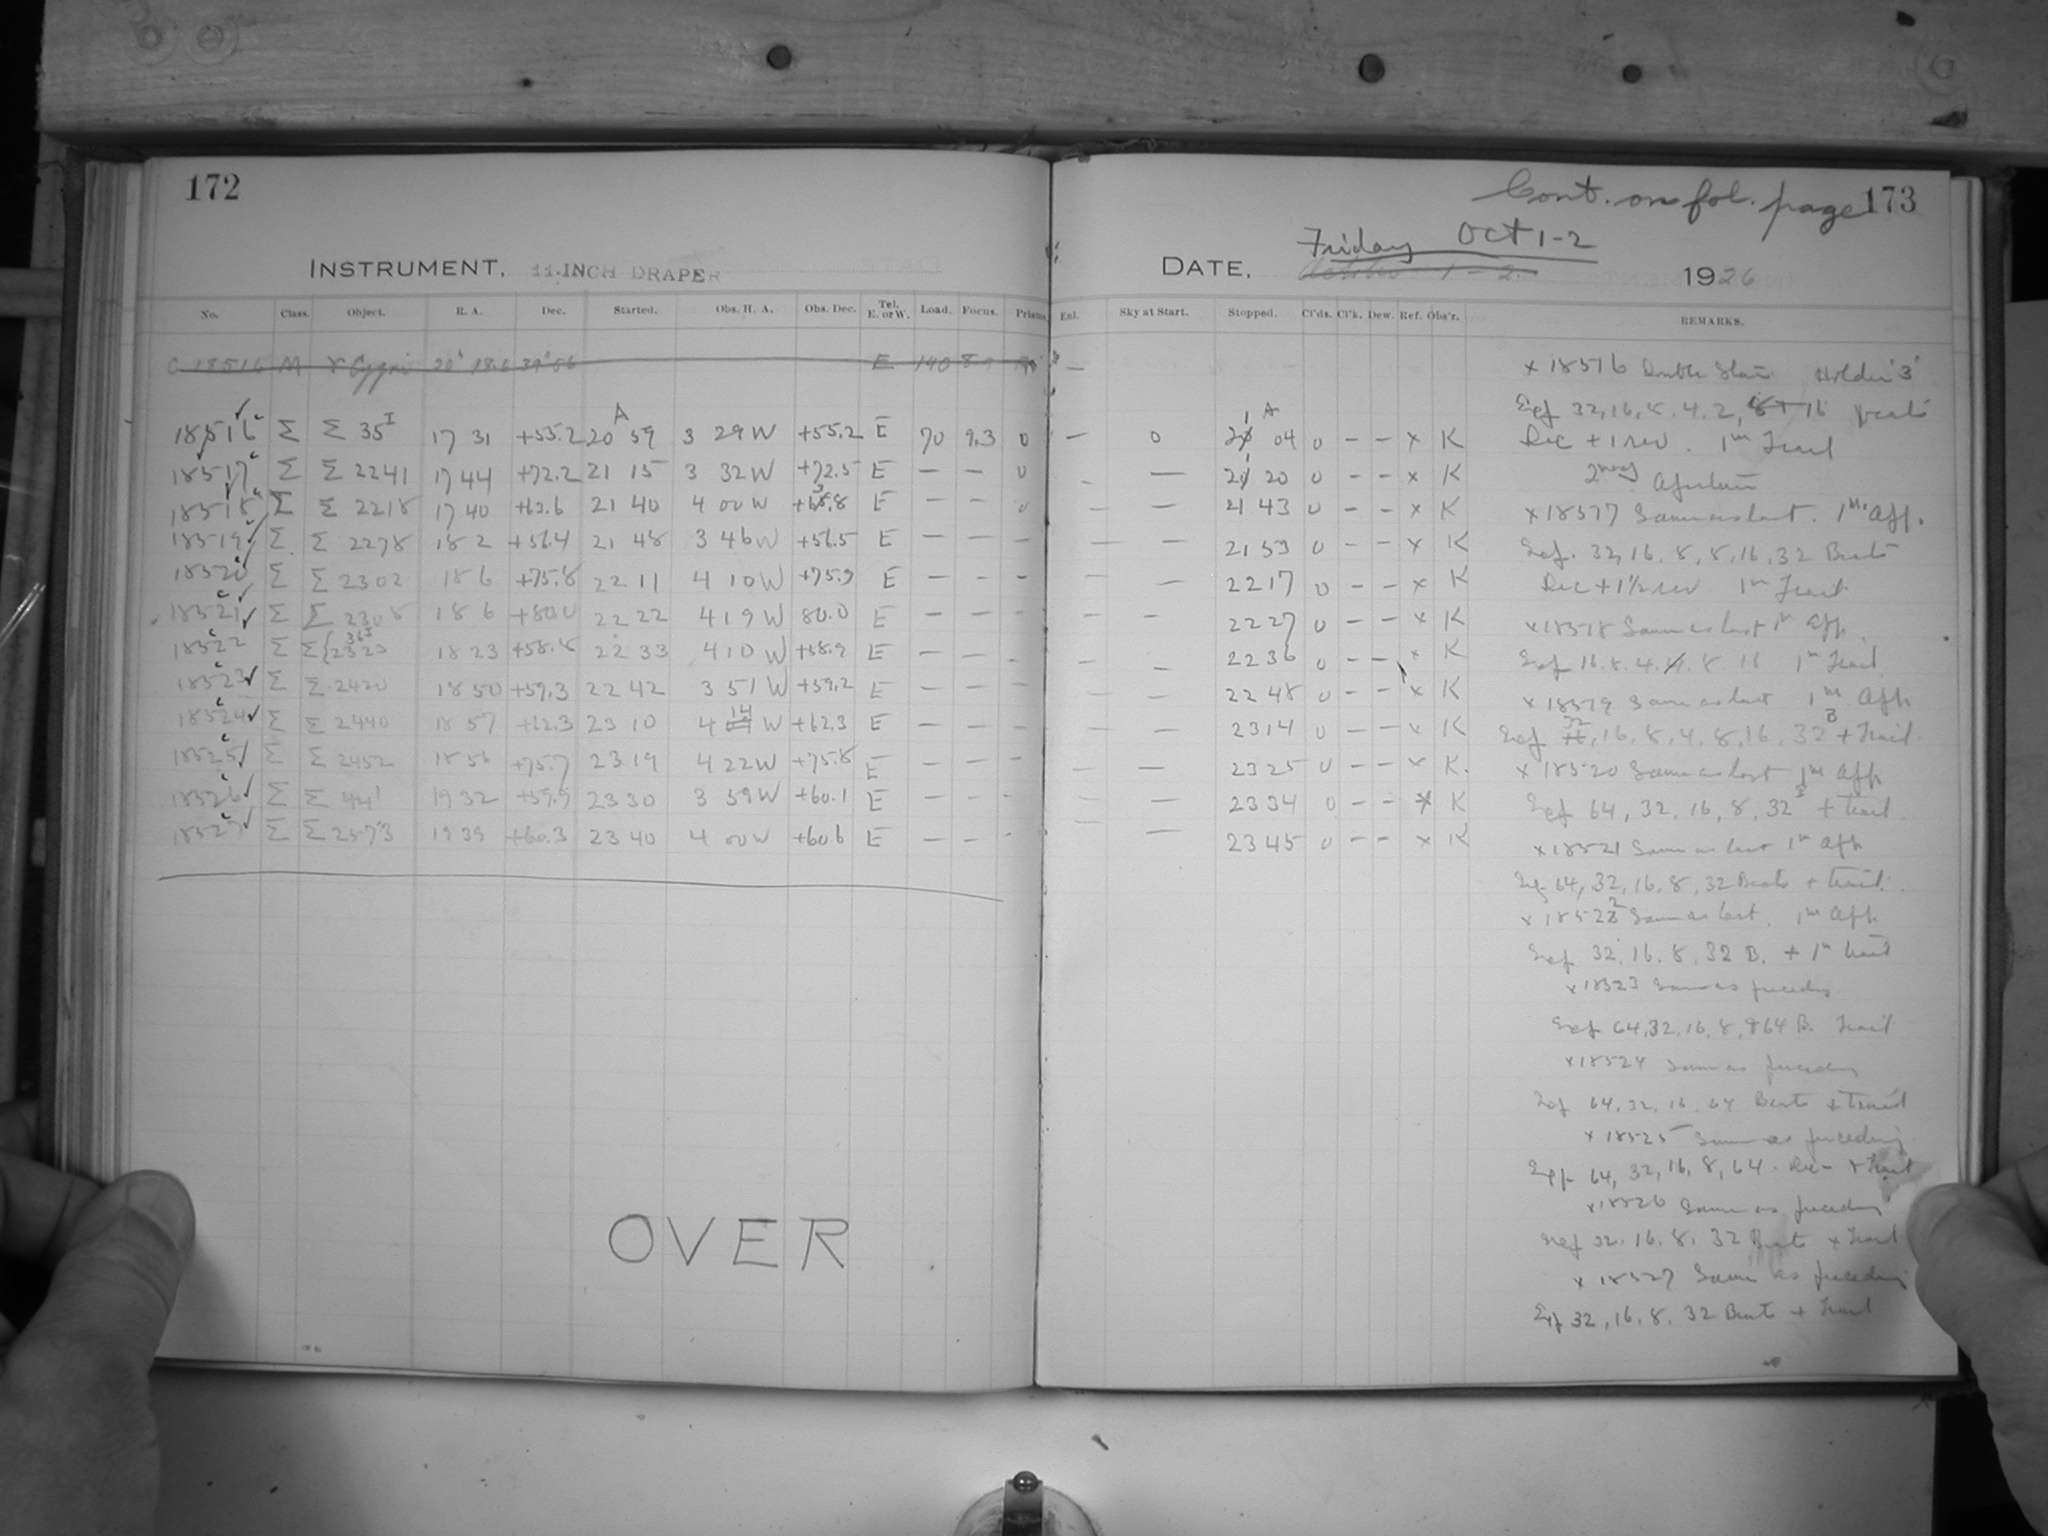 172
INSTRUMENT, 11-INCH DRAPER
No. Class. Object. R. A. Dec. Started. Obs. H. A. Obs. Dec. Tel. E. or W. Load. Focus. Prisms.
C 18516 M γ Cygni 20 18.6 39 56 E 140 8.9
A
18516 Σ Σ 35 I 17 31 +55.2 20 59 3 29 W +55.2 E 70 9.3 0
18517 Σ Σ 2241 17 44 +72.2 21 15 3 32 W +72.5 E — — 0
18518 Σ Σ 2218 17 40 +63.6 21 40 4 00 W E — — 0
18519 Σ Σ 2278 18 2 +56.4 21 48 3 46 W +56.5 E — — -
18520 Σ Σ 2302 18 6 +75.8 22 11 4 10 W +75.9 E — — -
18521 Σ Σ 2308 18 6 +80.0 22 22 4 19 W 80.0 E — — -
18522 Σ Σ { 2323 18 23 +58.8 22 33 4 10 W +58.9 E — — -
18523 Σ Σ 2420 18 50 +59.3 22 42 3 51 W +59.2 E — — -
18524 Σ Σ 2440 18 57 +62.3 23 10 4 14 W +62.3 E — — -
18525 Σ Σ 2452 18 56 +75.7 23 19 4 22 W +75.8 E — — -
18526 Σ Σ 44 I 19 32 +59.9 23 30 3 59 W +60.1 E — — -
18527 Σ Σ 2573 19 39 +60.3 23 40 4 00 W +60.6 E — — -
OVER
Cont. on fol. page 173
Friday Oct 1-2
DATE, October 1 - 2. 1926
Enl. Sky at Start. Stopped. Cl'ds. Cl'k. Dew. Ref. Obs'r. REMARKS.
— × 18516 Double Stars Holder 3
A Exp 32, 16, 8, 4, 2, 8 + 16
— 0 21 04 0 - - × K Dec + 1 rev. 1m Trail
- — 21 20 0 - - × K Aperture
— — 21 43 0 - - × K × 18517 Same as last. 1m App.
— — 21 53 0 - - × K Exp. 32, 16, 8, 8, 16, 32 Beats
— — 22 17 0 - - × K Dec + 1½ rev 1m Trail
— — 22 27 0 - - × K × 18518 Same as last 1m App.
- — 22 36 0 - - × K Exp 16. 8. 4. 4. 8. 16 1m Trail
— — 22 48 0 - - × K × 18519 Same as last 1m App
— — 23 14 0 - - × K Exp 32, 16, 8, 4, 8, 16, 32 B + Trail.
— — 23 25 0 - - × K. × 18520 Same as last 1m App
— — 23 34 0 - - × K Exp 64, 32, 16, 8, 32 + Trail.
— — 23 45 0 - - × K × 18521 Same as last 1m App
Exp 64, 32, 16, 8, 32 Beats + Trail.
× 18522 Same as last. 1m App.
Exp 32, 16. 8. 32 B. + 1m Trail
× 18523 Same as preceding
Exp 64, 32, 16, 8, 64 B. Trail
× 18524 Same as preceding
Exp 64, 32, 16 64 Beats + Trail
× 18525 Same as preceding
Exp 64, 32, 16, 8, 64. + Trail
× 18526 Same as preceding
Exp 32. 16. 8. 32 Beats + Trail
× 18527 Same as preceding
Exp 32, 16, 8, 32 Beats + Trail